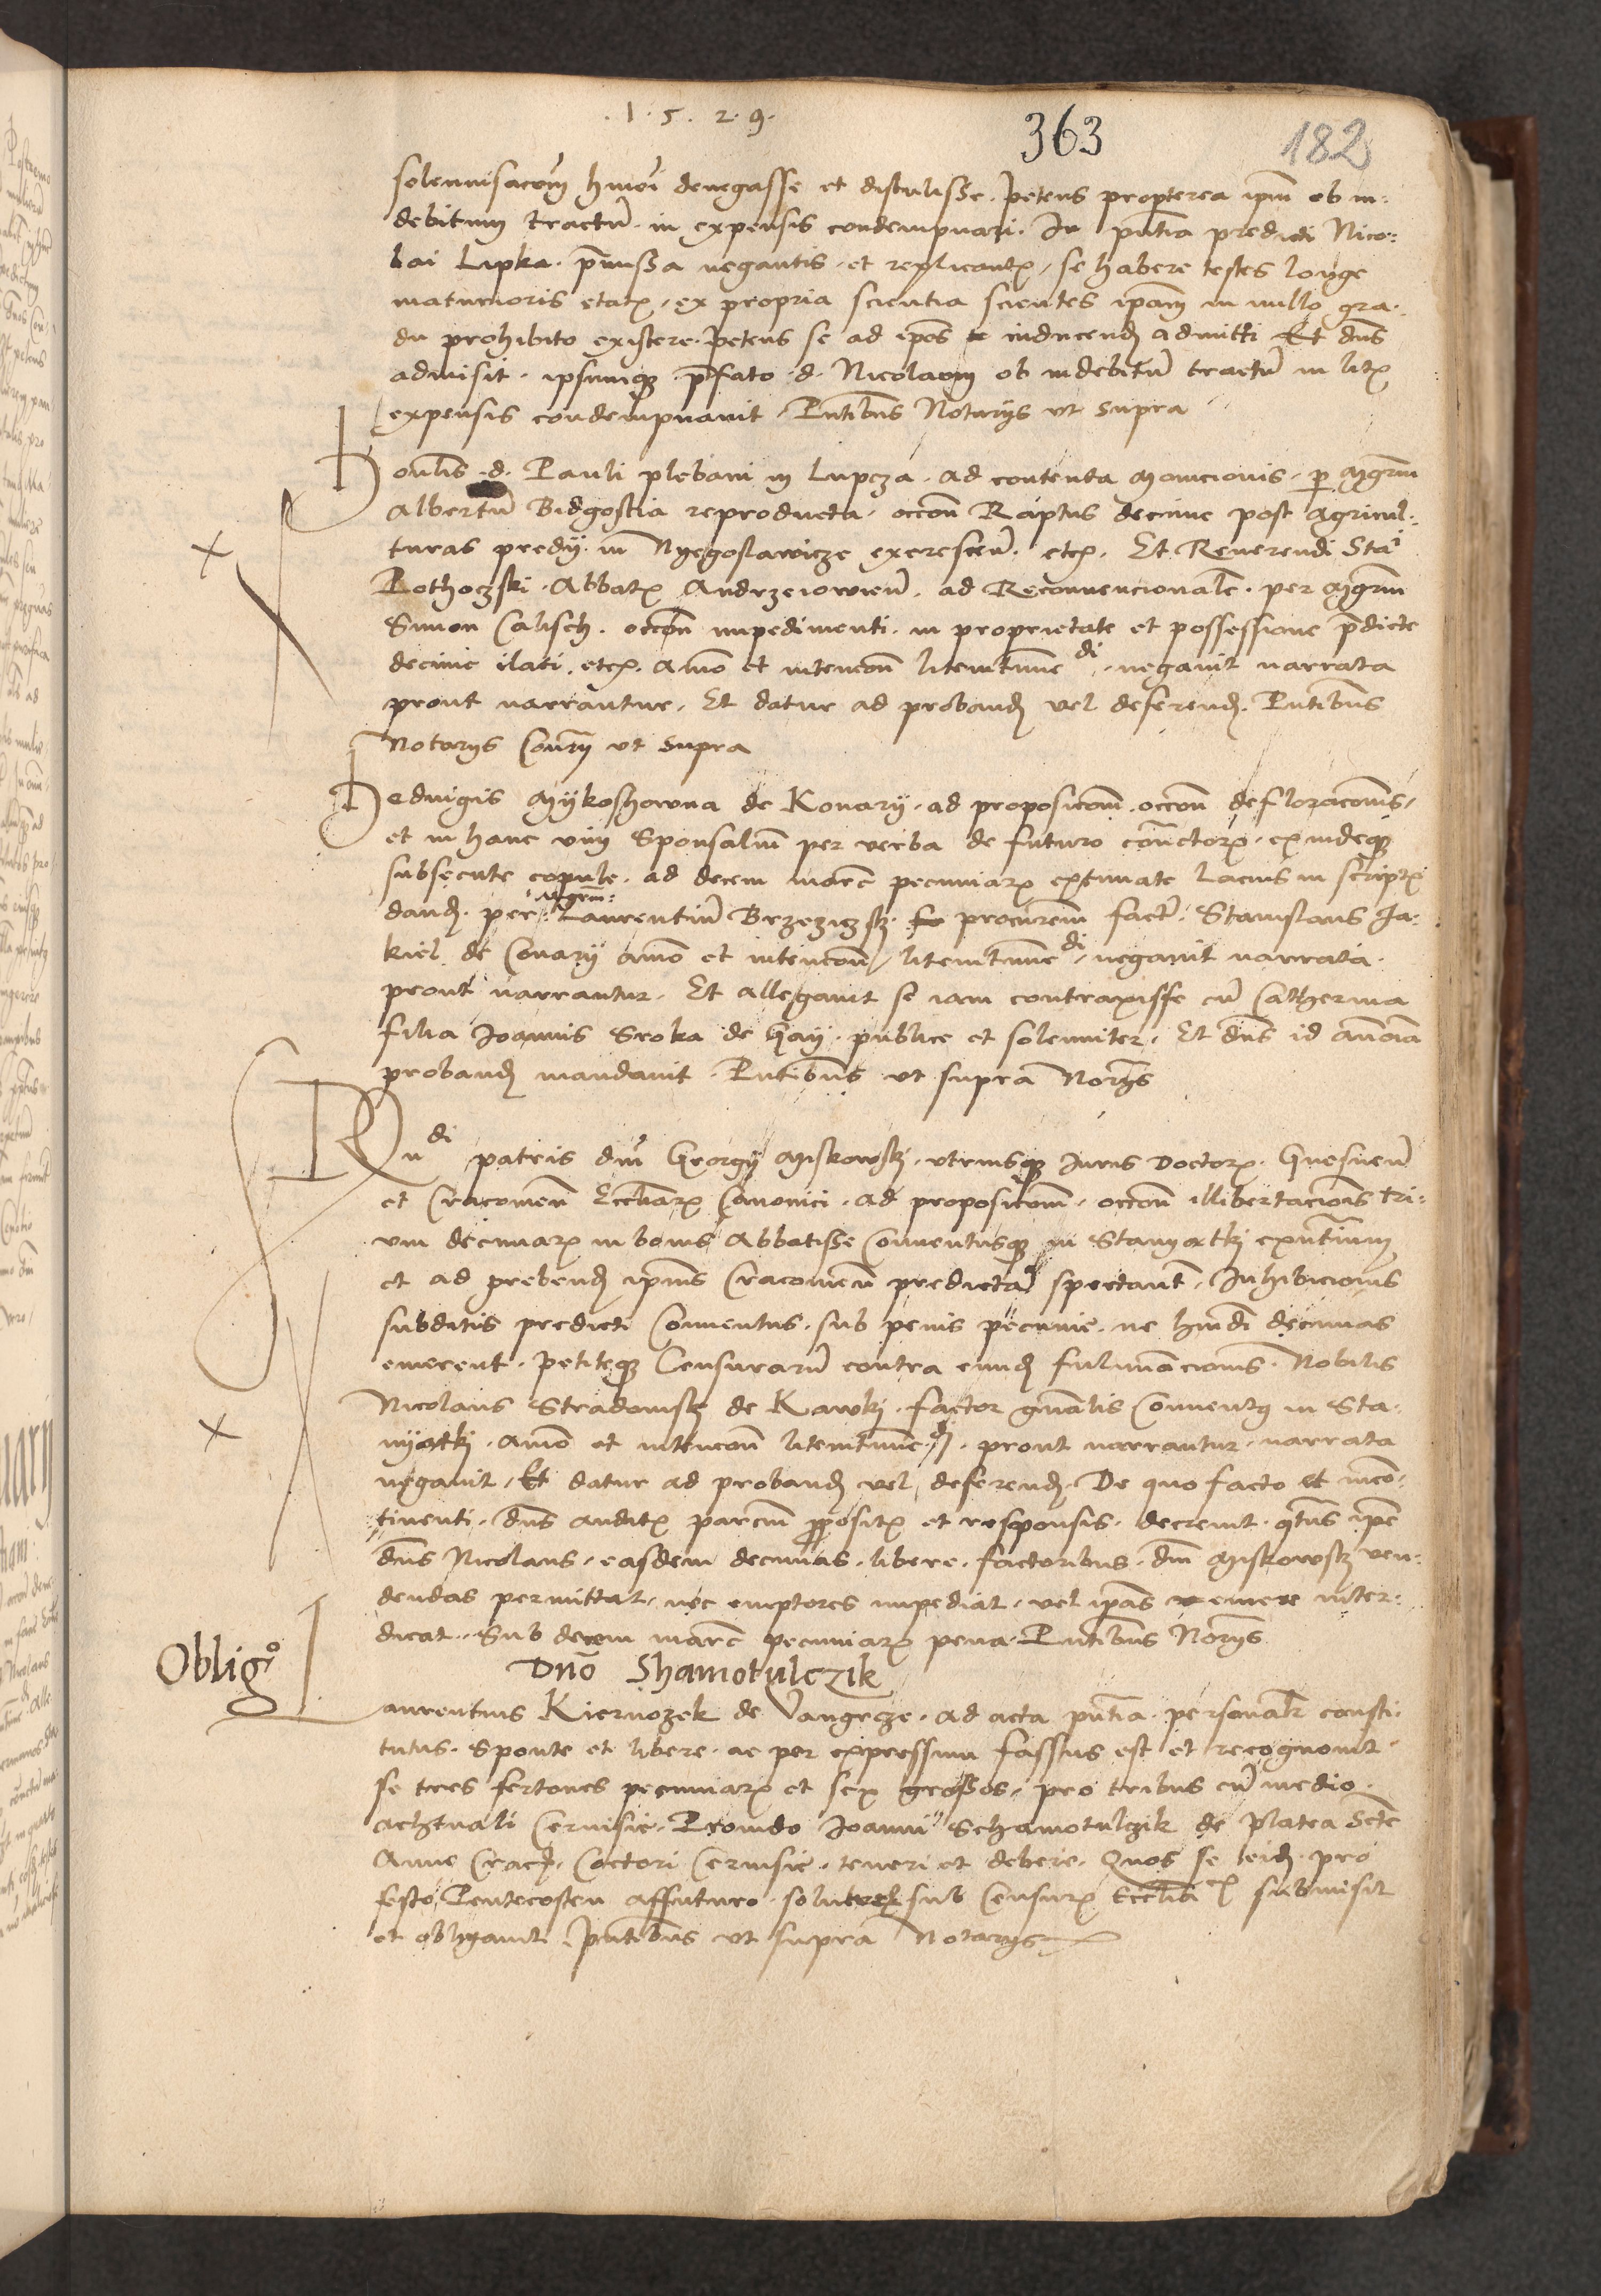 .1.5.2.9.
363
182
solemnisacōm hmōi denegasse et distulisse. petens propterea ipm̄ ob in-
debitum tractū. in expensis condempnari. In pn̄tia predicti Nico-
lai Lipka. p̄missa negantis. et replicantꝭ. se habere testes longe
maturioris etatꝭ. ex propria scientia scientes ipām in nullo gra-
du prohibito existere. petens se ad ipōs inducend̄ admitti Et dn̄s
admisit. ipsumqꝫ p̄fato .d. Nicolaom ob indebitū tractū in litꝭ
expensis condempnavit. Pn̄tibus Notarijs ut supra
Honlis .d. Pauli plebani in Lupcza. ad contenta monicionis. per Mgr̄m
Albertū Bidgostia reproducta. occōne Raptus decime post agricul-
turas predij. in Nyegoslawicze excrescen̄. etcꝭ. Et Reverendi Stāi
Rothoczski. Abbatꝭ Andrzeiowien̄. ad Reconvencionale. per Mgr̄m
Simon Calisch. occōne impedimenti. in proprietate et possessione p̄dicte
decime ilati. etcꝭ. aīo et intencōne litem t̄ūne di. negavit narrata
prout narrantur. Et datur ad proband̄ vel deferend̄. Pn̄tibus
Notarijs Coūrij ut supra
Hedvigis Mykoshowna de Konary. ad proposicōm. occōne defloracōnis,
et in hanc vim Sponsaliū per verba de futuro cōn̄ctorꝭ. exindeqꝫ
subsecute copule. ad decem marc̄ pecuniarꝭ extimate Lacius in scriptꝭ
dand̄. per Mgrm̄: Laurentiū Brzezyczsky procur̄em fact. Stanislaus Ja-
kiel de Conary aīo et intencōne litem t̄ūne di. negavit narrata.
prout narrantur. Et allegavit se iam contraxisse cū Catherina
filia Joannis Sroka de Gay. publice et solemniter. Et dn̄s id
proband̄ mandavit. Pn̄tibus ut supra Norijs
Rndi patris dn̄i Georgij Miskowsky. utriusqꝫ Juris Doctorꝭ. Gnesnen̄
et Cracovien̄ Eccl̄iarꝭ Canonici. ad proposicōm. occōne illibertacionis tri-
um decimarꝭ in bonis Abbatisse Conventusqꝫ in Stanyatky exn̄tium
et ad prebend̄ ipsius Cracovien̄ predictā spectant. Inhibicionis
subditis predicti Conventus. sub penis pecunie. ne hmōdi decimas
emerent. petiteqꝫ Censurarū contra eund̄ fulminacionis. Nobilis
Nicolaus Stradomsky de Kawky. factor gn̄alis Conventus in Sta-
nyatky. aīo et intencōne litem t̄ūne di. prout narrantur. narrata
negavit. Et datur ad proband̄ vel deferend̄. De quo facto et inco-
tinenti. dn̄s auditꝭ parcium p̄positꝭ et responsis. decrevit. q̄tus ip̄e
dn̄s Nicolaus. easdem decimas. libere. factoribus. dn̄i Miskowsky ven-
dendas permittat. nec emptores impediat. vel ip̄as emere inter-
dicat. Sub decem marc̄ pecuniarꝭ pena. Pn̄tibus Norijs
Obligº
Dn̄o Shamotulczik
Laurentius Kiernozek de Vangrcze. ad acta pn̄tia. personal̄r consti-
tutus. Sponte et libere. ac per expressum fassus est et recognovit.
se tres fertones pecuniarꝭ et sex grossos. pro tribus cū medio.
achtvali Cervisie. Provido Joanni Schamotulczik de platea Scte
Anne Crac̄. Coctori Cervisie. teneri et debere. Quos se eid̄ pro
festo Pentecosten affuturo. solvere sub Censurꝭ Eccl̄ia sꝭ submisit
et obligavit. pn̄tibus ut supra Notarijs